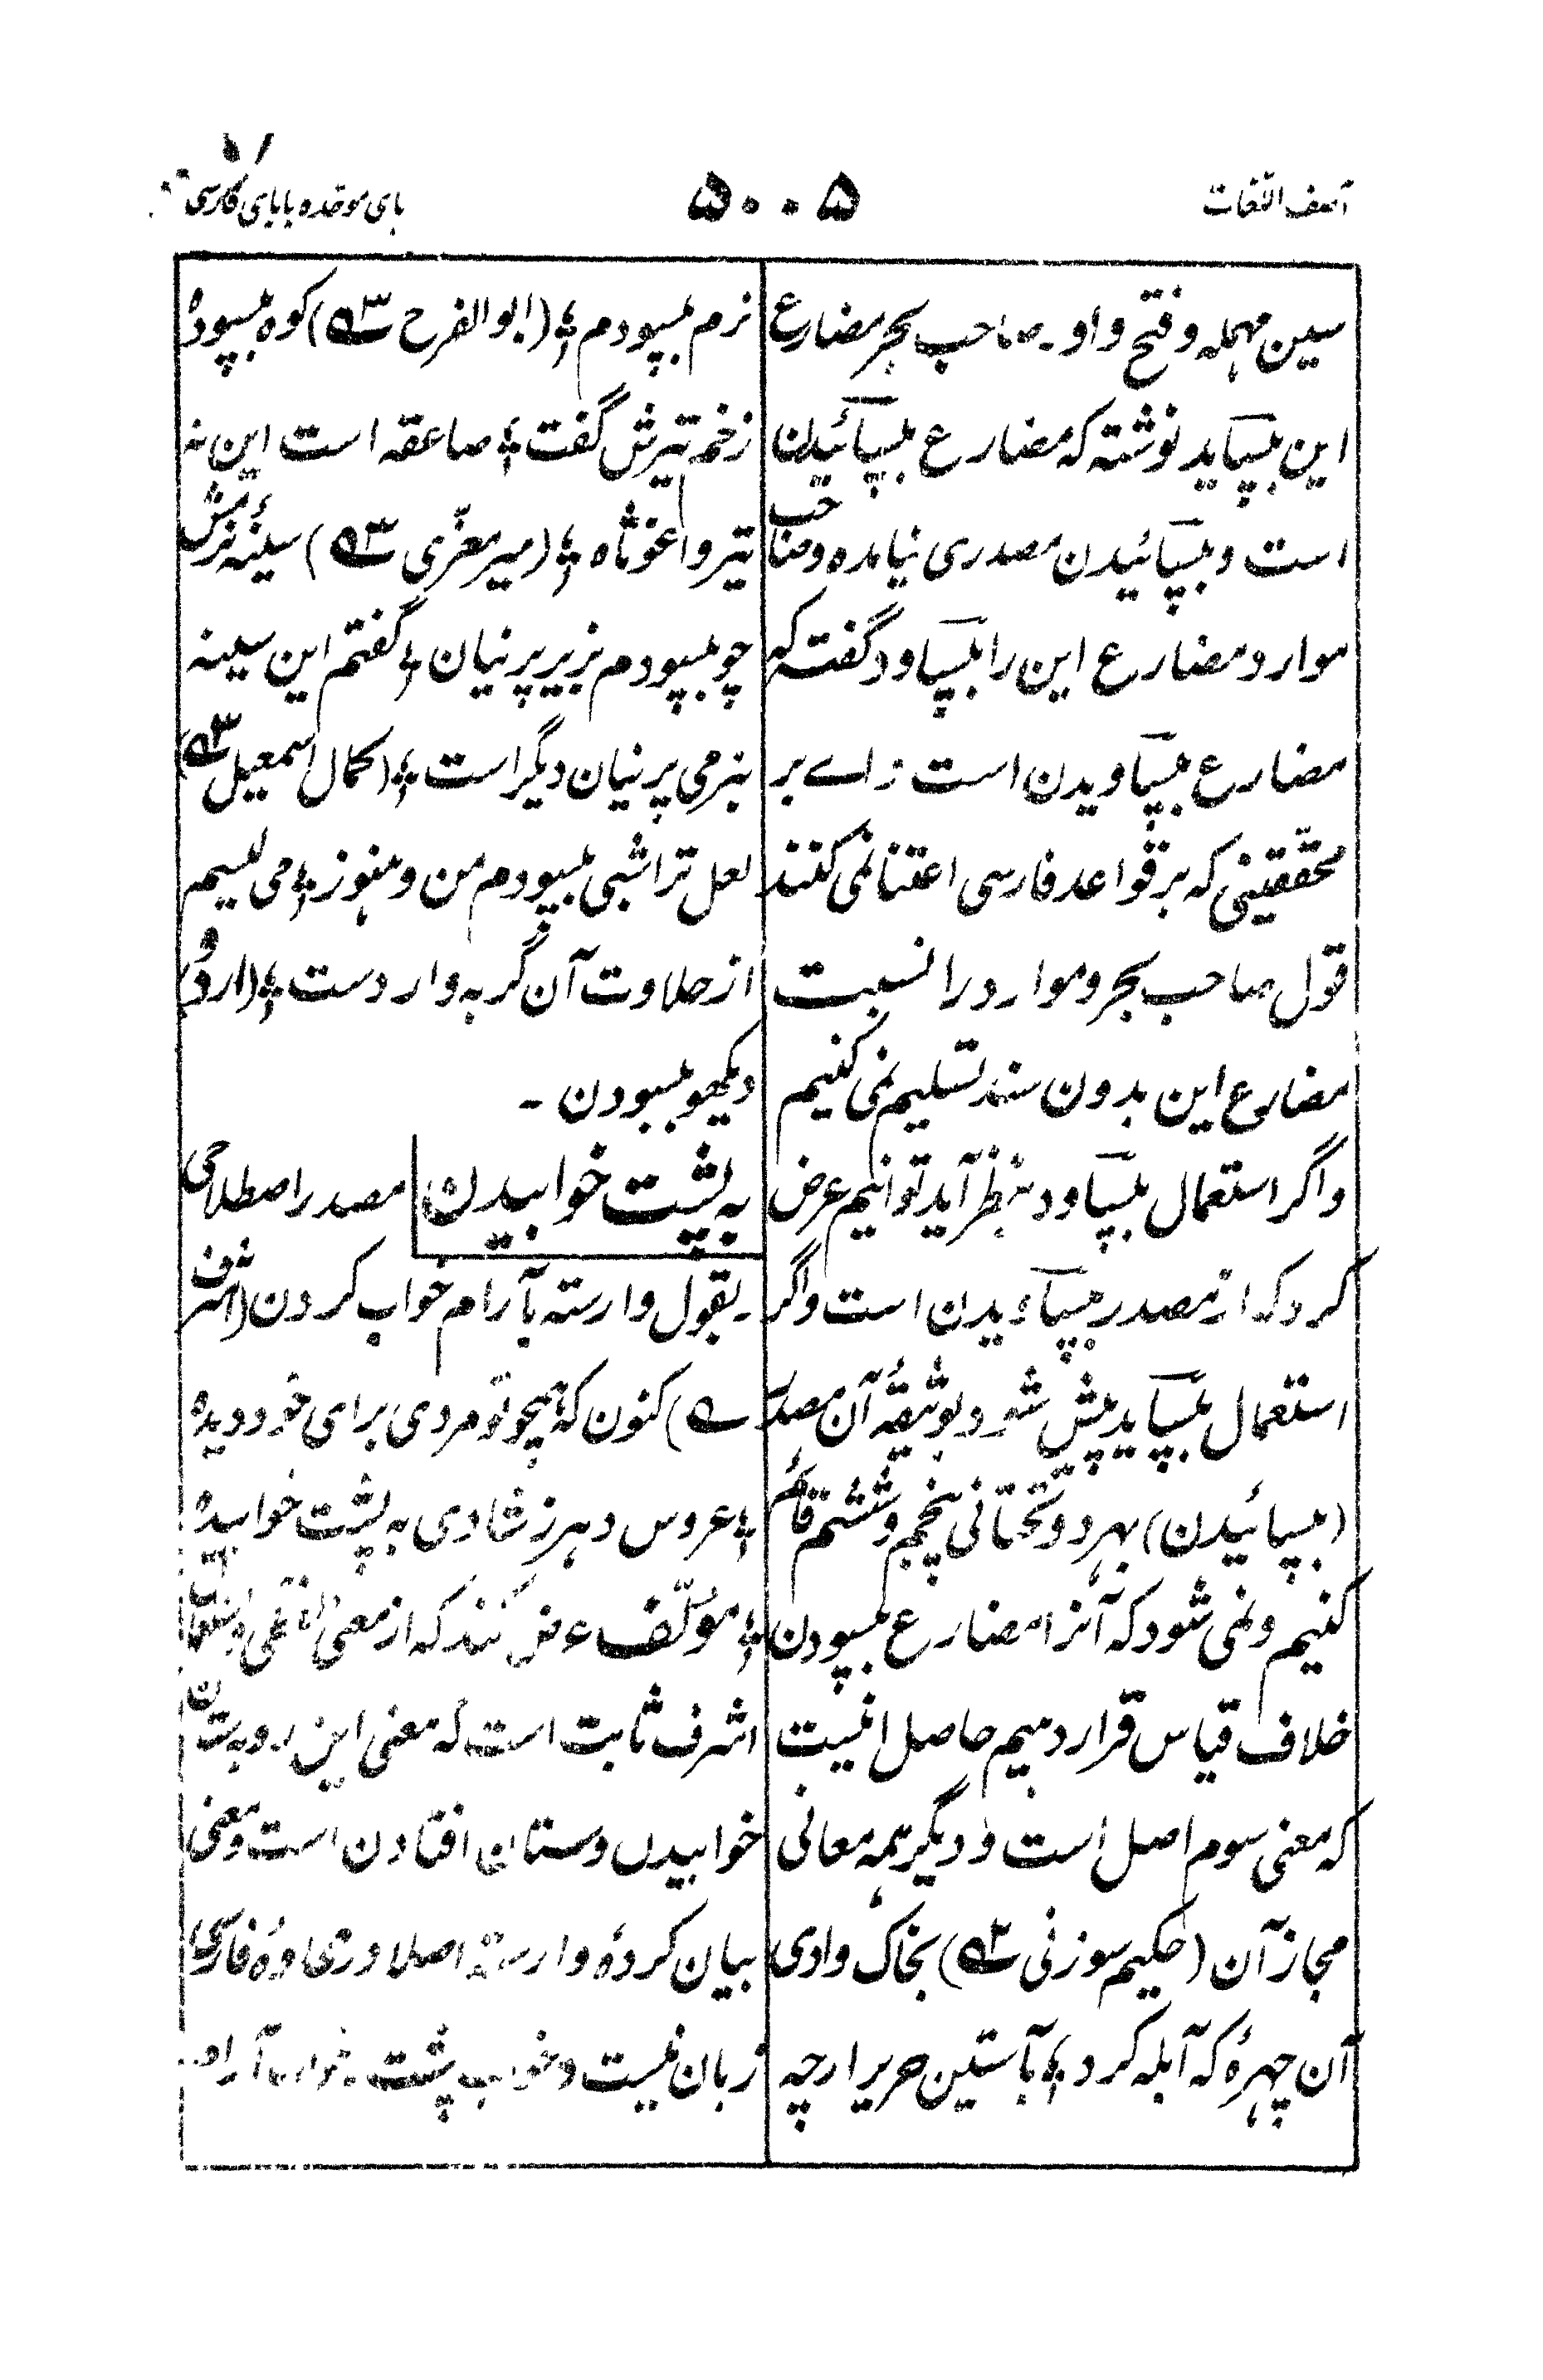 آصف اللغات
۵۰۰۵
بای موحده بابای فارسی
سین مهمله و فتح واو۔ صاحب بحر مضارع
این بپساید نوشته که مضارع بپسائیدن
است و بپسائیدن مصدری نیامده و صاحب
موارد مضارع این را بپساود گفته که
مضارع بپساویدن است زاے بر
محققینی که بر قواعد فارسی اعتنا نمی کنند
قول صاحب بحر و موارد را نسبت
مضارع این بدون سند تسلیم نمی کنیم
و اگر استعمال بپساود بنظر آید توانیم عرض
کرد که از مصدر بپساویدن است و اگر
استعمال بپساید پیش شود بوثیقهٔ آن مصدر
(بپسائیدن) بهر دو تحتانی پنجم و ششم قائم
کنیم و نمی شود که آنرا مضارع بپسودن
خلاف قیاس قرار دهیم حاصل اینست
که معنی سوم اصل است و دیگر همه معانی
مجاز آن (حکیم سوزنی ؎) بخاک وادی
آن چهرهٔ که آبله کرد ؛ بآستین حریر ارچه
نرم بپسودم ؛ (ابوالفرح ؎) کوه بپسوده
زخم تیرش گفت ؛ صاعقه است این نه
تیر واغوثاه ؛ (میر معزّی ؎) سینهٔ نرمش
چو بپسودم بزیر پرنیان ؛ گفتم این سینه
بنرمی پرنیان دیگر است ؛ (کمال اسمعیل ؎)
لعل ترا شبی بپسودم من و هنوز ؛ می لیسم
از حلاوت آن گربه وار دست ؛ (اردو)
دیکھو ببسودن ۔
به پشت خوابیدن مصدر اصطلاحی
۔ بقول وارسته بآرام خواب کردن (اشرف
؎) کنون که همچو تو مردی برای خود دیده
؛ عروس دهر ز شادی به پشت خوابیده
؛ مؤلّف عرض کند که از معنی لفظی و استعمال
اشرف ثابت است که معنی این رو به پشت
خوابیدن و ستان افتادن است و معنی
بیان کردهٔ وارسته اصلا در محاورهٔ فارسی
زبان نیست و خواب پشت